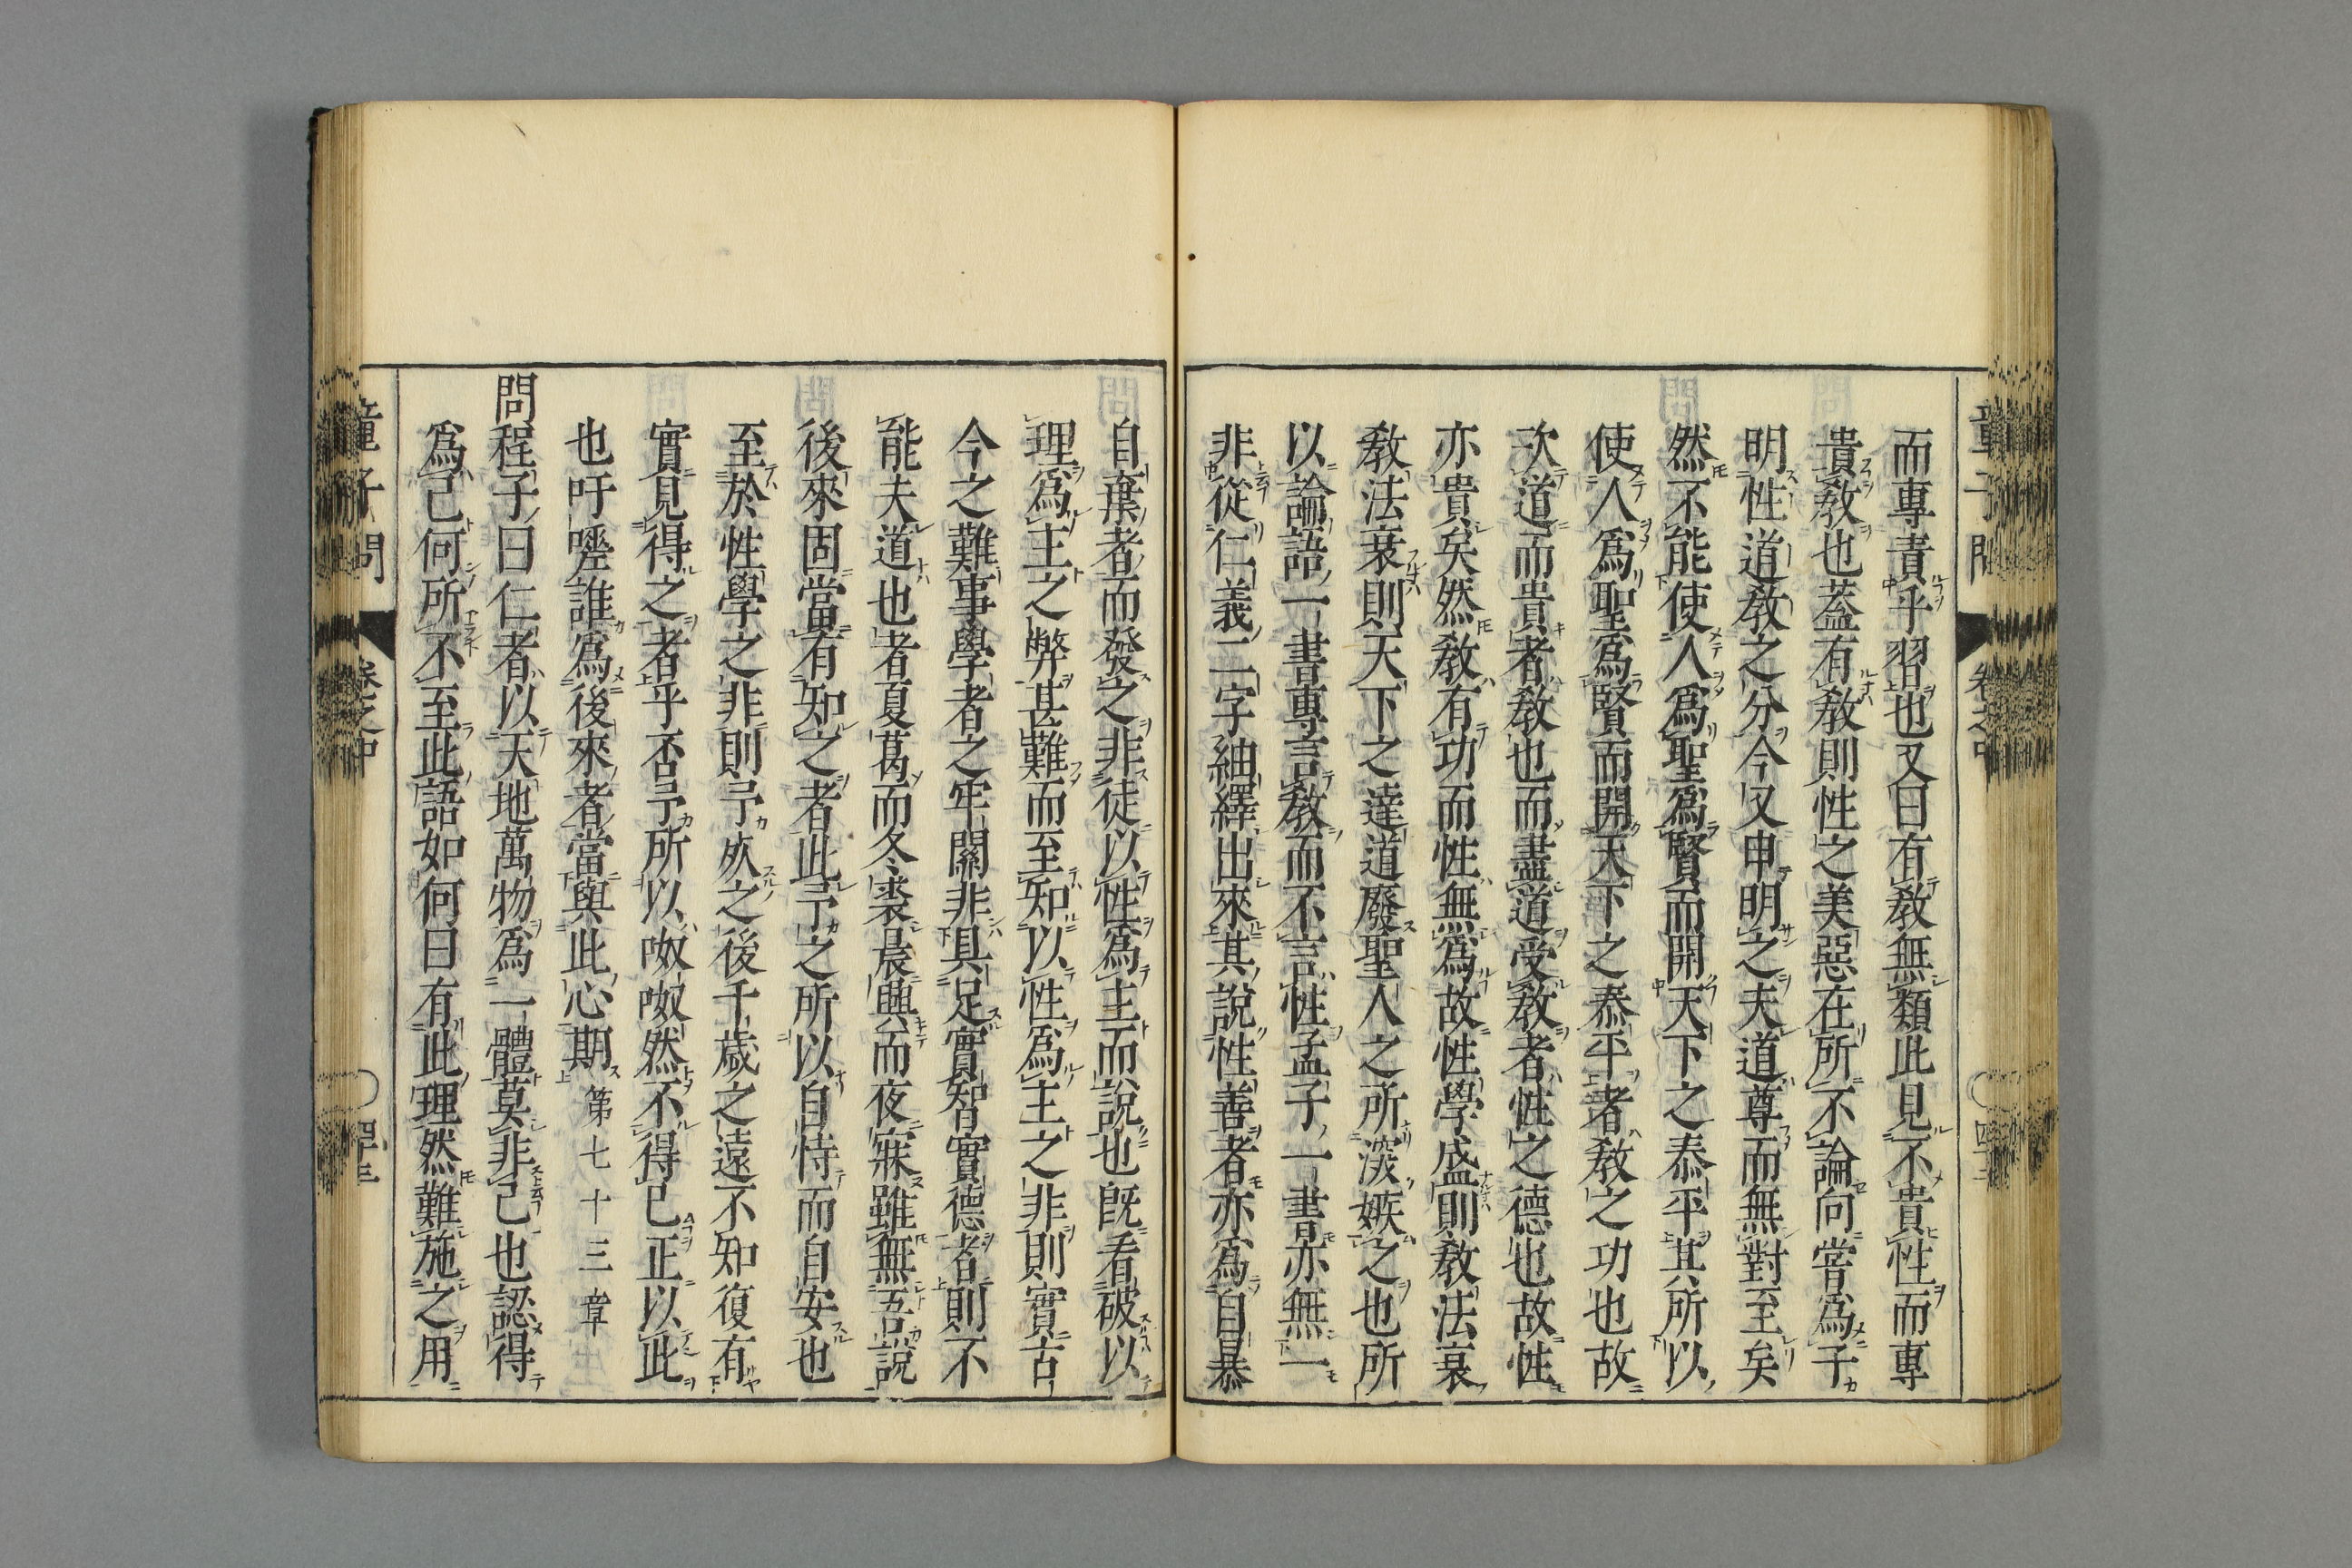 而專責乎習也又曰有教無類此見不貴性而專
貴教也蓋有教則性之美惡在所不論向嘗爲子
明性道教之分今又申明之夫道尊而無對至矣
然不能使人爲聖爲賢而開天下之泰平其所以
使人爲聖爲賢而開天下之泰平者教之功也故
次道而貴者教也而盡道受教者性之德也故性
亦貴矣然教有功而性無爲故性學盛則教法衰
教法衰則天下之達道廢聖人之所深嫉之也所
以論語一書專言教而不言性孟子一書亦無一
非從仁義二字紬繹出來其說性善者亦爲自暴
自棄者而發之非徒以性爲主而說也旣看破以
理爲主之弊甚難而至知以性爲主之非則實古
今之難事學者之牢關非具足實智實德者則不
能夫道也者夏葛而冬裘晨興而夜寐雖無吾說
後來固當有知之者此予之所以自恃而自安也
至於性學之非則予歿之後千歲之遠不知復有
實見得之者乎否予所以呶呶然不得已正以此
也吁嗟誰爲後來者當與此心期 第七十三章
問程子曰仁者以天地萬物爲一體莫非己也認得
爲己何所不至此語如何曰有此理然難施之用
童子問 卷之中 四十三